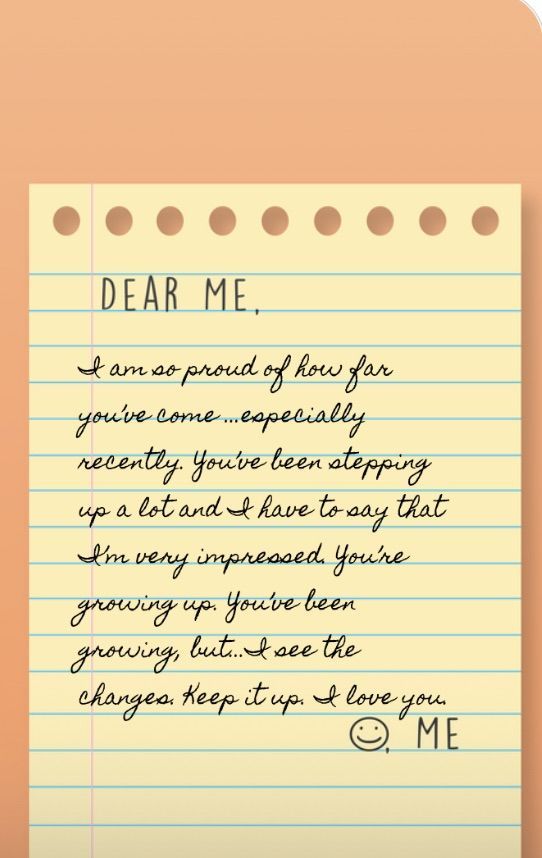 DEAR ME,
I am so proud of how far
you've come ...especially
recently. You've been stepping
up a lot and I have to say that
I'm very impressed. You're
growing up. You've been
growing, but...I see the
changes. Keep it up. I love you.
☺, ME